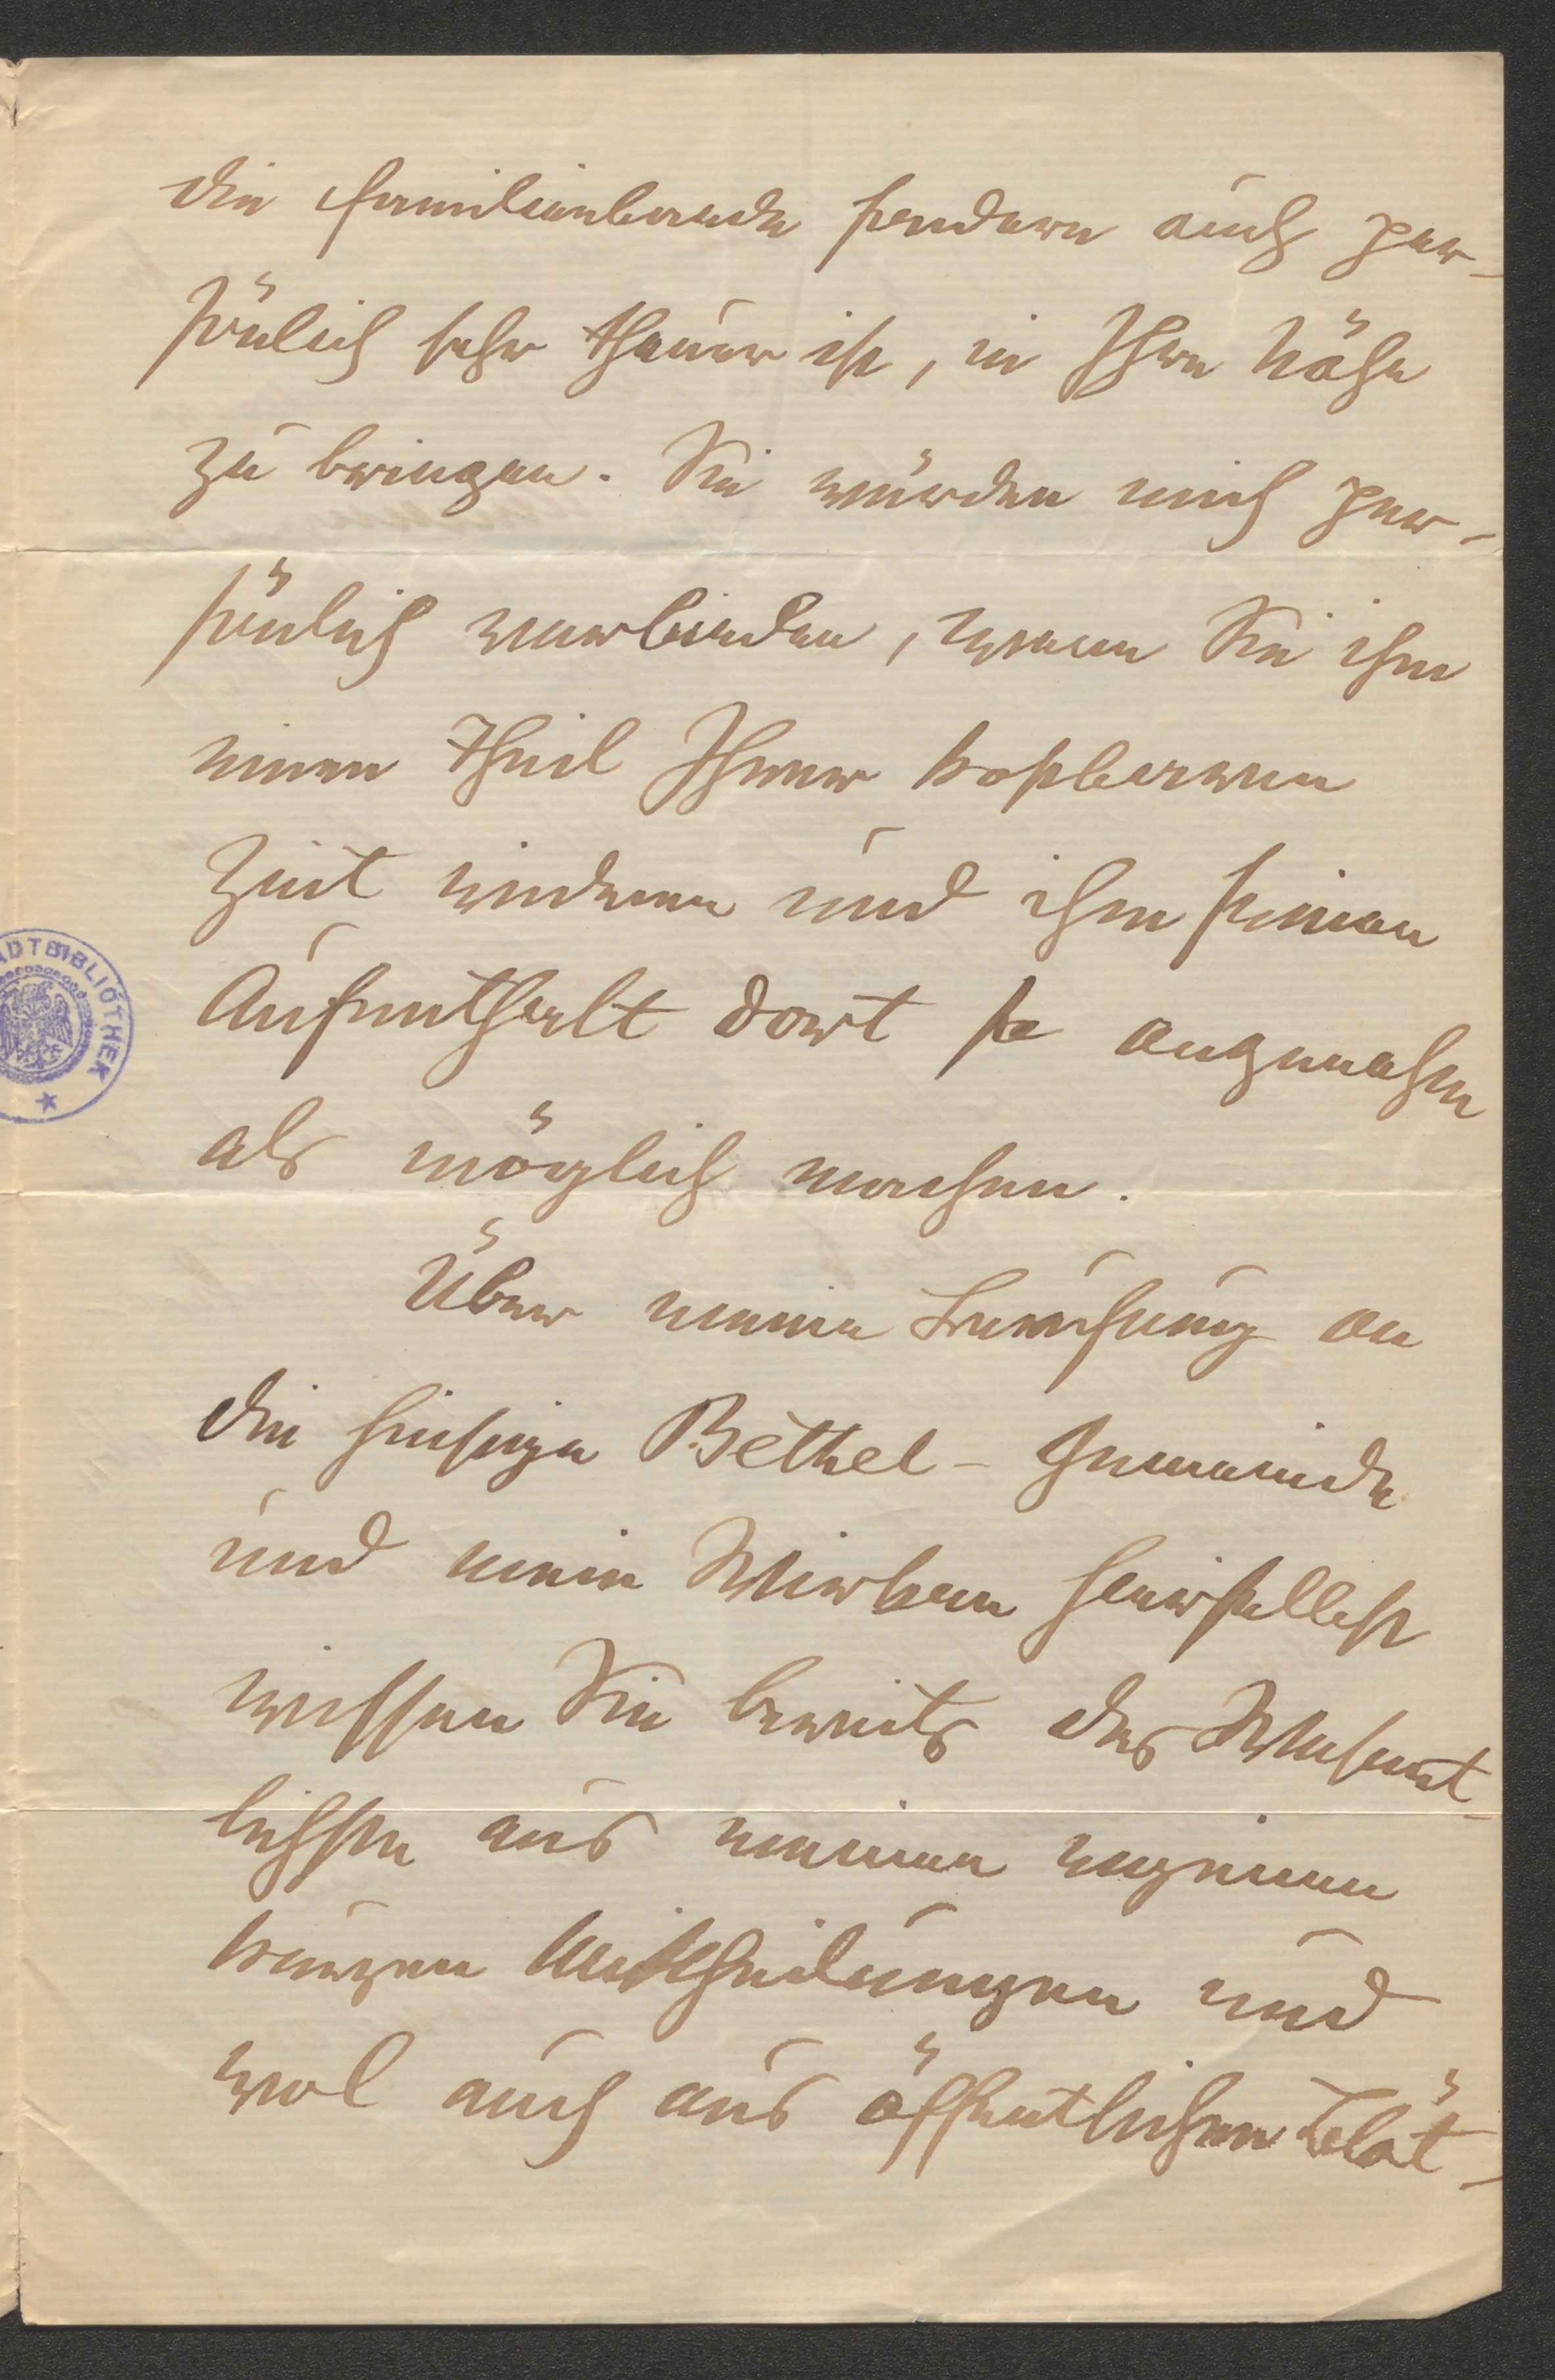 die Familienbande sondern auch per-
sönlich sehr theuer ist, in Ihre Nähe
zu bringen. Sie würden mich per-
sönlich verbinden, wenn Sie ihm
einen Theil Ihrer kostbaren
Zeit widmen und ihm seinen
Aufenthalt dort so angenehm
als möglich machen.
Über meine Berufung an
die hiesige Bethel-Gemeinde
und mein Wirken hierselbst
wissen Sie bereits das Wesent-
lichste aus meinen eigenen
kurzen Mittheilungen und
wol auch aus öffentlichen Blät-
ADTBIBLIOTHEK